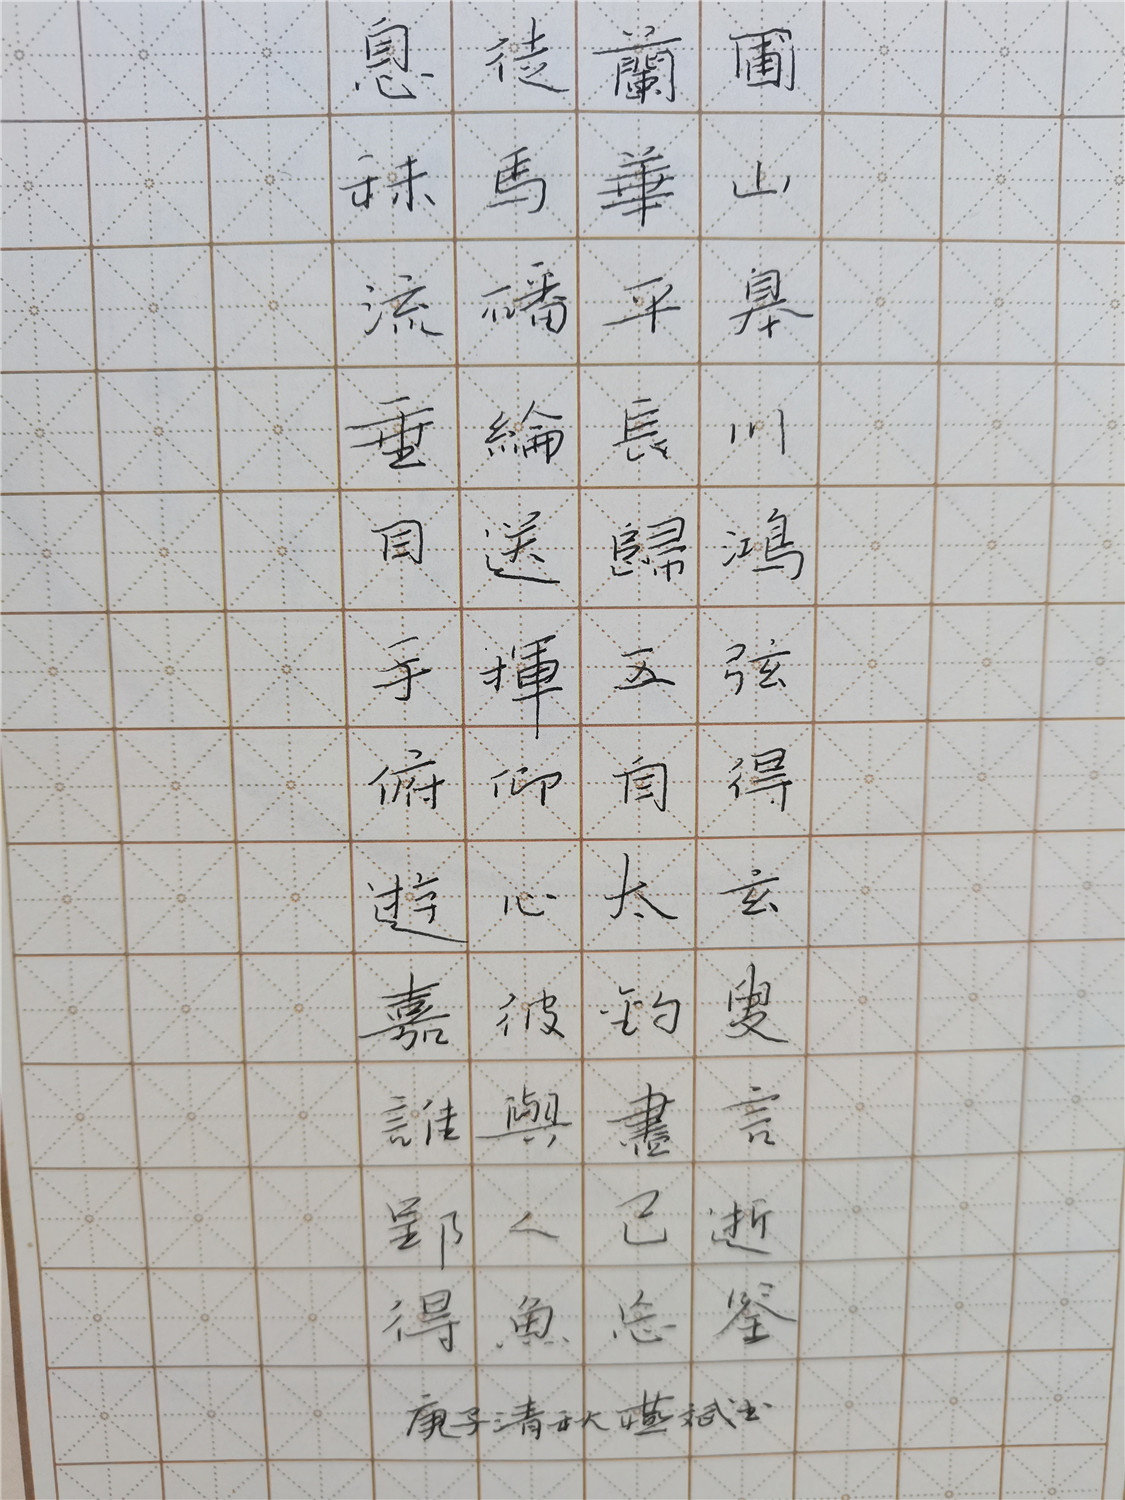 息徒蘭圃
秣馬華山
流磻平皋
垂綸長川
目送歸鴻
手揮五弦
俯仰自得
遊心太玄
嘉彼釣叟
誰與盡言
郢人已逝
得魚忘筌
庚子清秋斌书